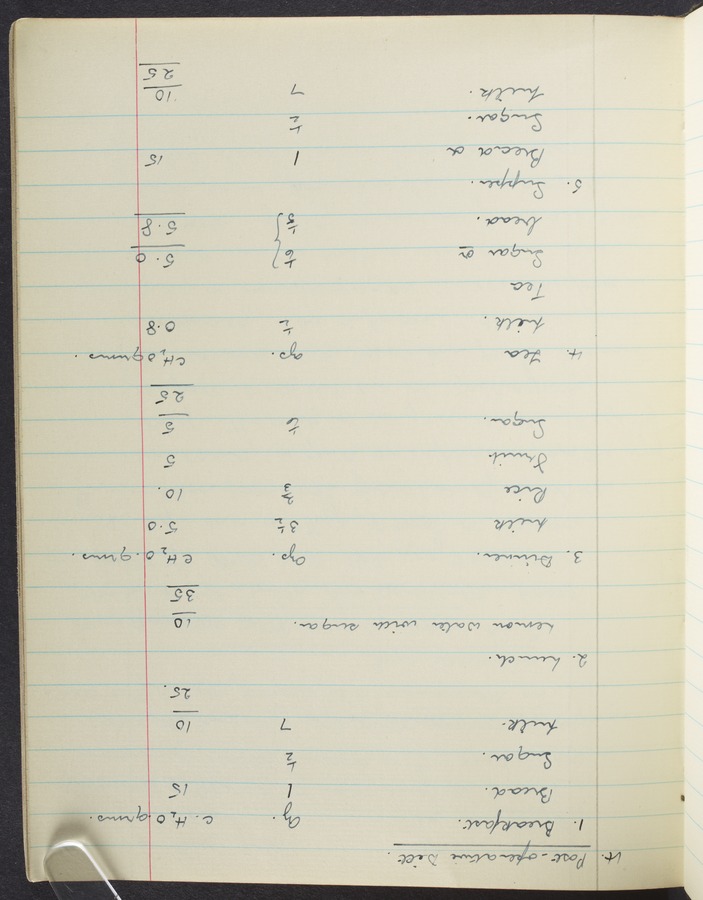 4. Post-operative Diet.
1. Breakfast. oz. C.H₂O.grms.
Bread. 1 15
Sugar. ½
Milk. 7 10
25.
2. Lunch.
Lemon water with sugar. 10
35
3. Dinner. oz. CH₂O.grms.
Milk 3½ 5.0
Rice ⅔ 10.
Fruit. 5
Sugar. ⅙ 5
25
4. Tea oz. CH₂O grms.
Milk. ½ 0.8
Tea
Sugar & ⅙ } 5.0
bread. ⅓ } 5.8
5. Supper.
Bread & 1 15
Sugar. ½
Milk. 7 10
25